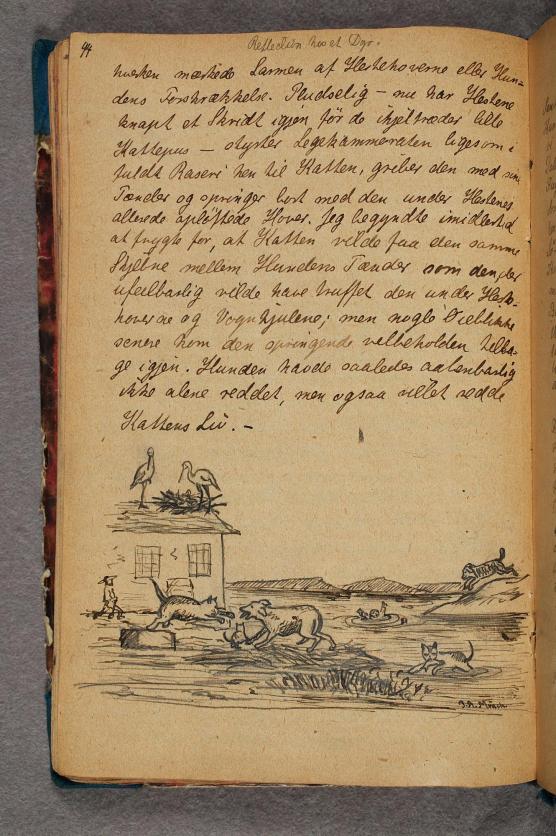 44
Reflection hos et Dyr.
hverken mærkede Larmen af Hestehoverne eller Hun-
dens Forskrækkelse. Pludselig – nu har Hestene
knapt et Skridt igjen før de ihjeltræder lille
Kattepus – styrter Legekammeraten ligesom i
fuldt Raseri hen til Katten, griber den med sine
Tænder og springer bort med den under Hestenes
allerede opløftede Hover. Jeg begyndte imidlertid
at frygte for, at Katten vilde faa den samme
Skjæbne mellem Hundens Tænder som den, der
ufeilbarlig vilde have truffet den under Heste-
hovene og Vognhjulene; men nogle Øieblikke
senere kom den springende velbeholden tilba-
ge igjen. Hunden havde saaledes aabenbarlig
ikke alene reddet, men ogsaa villet redde
Kattens Liv. –